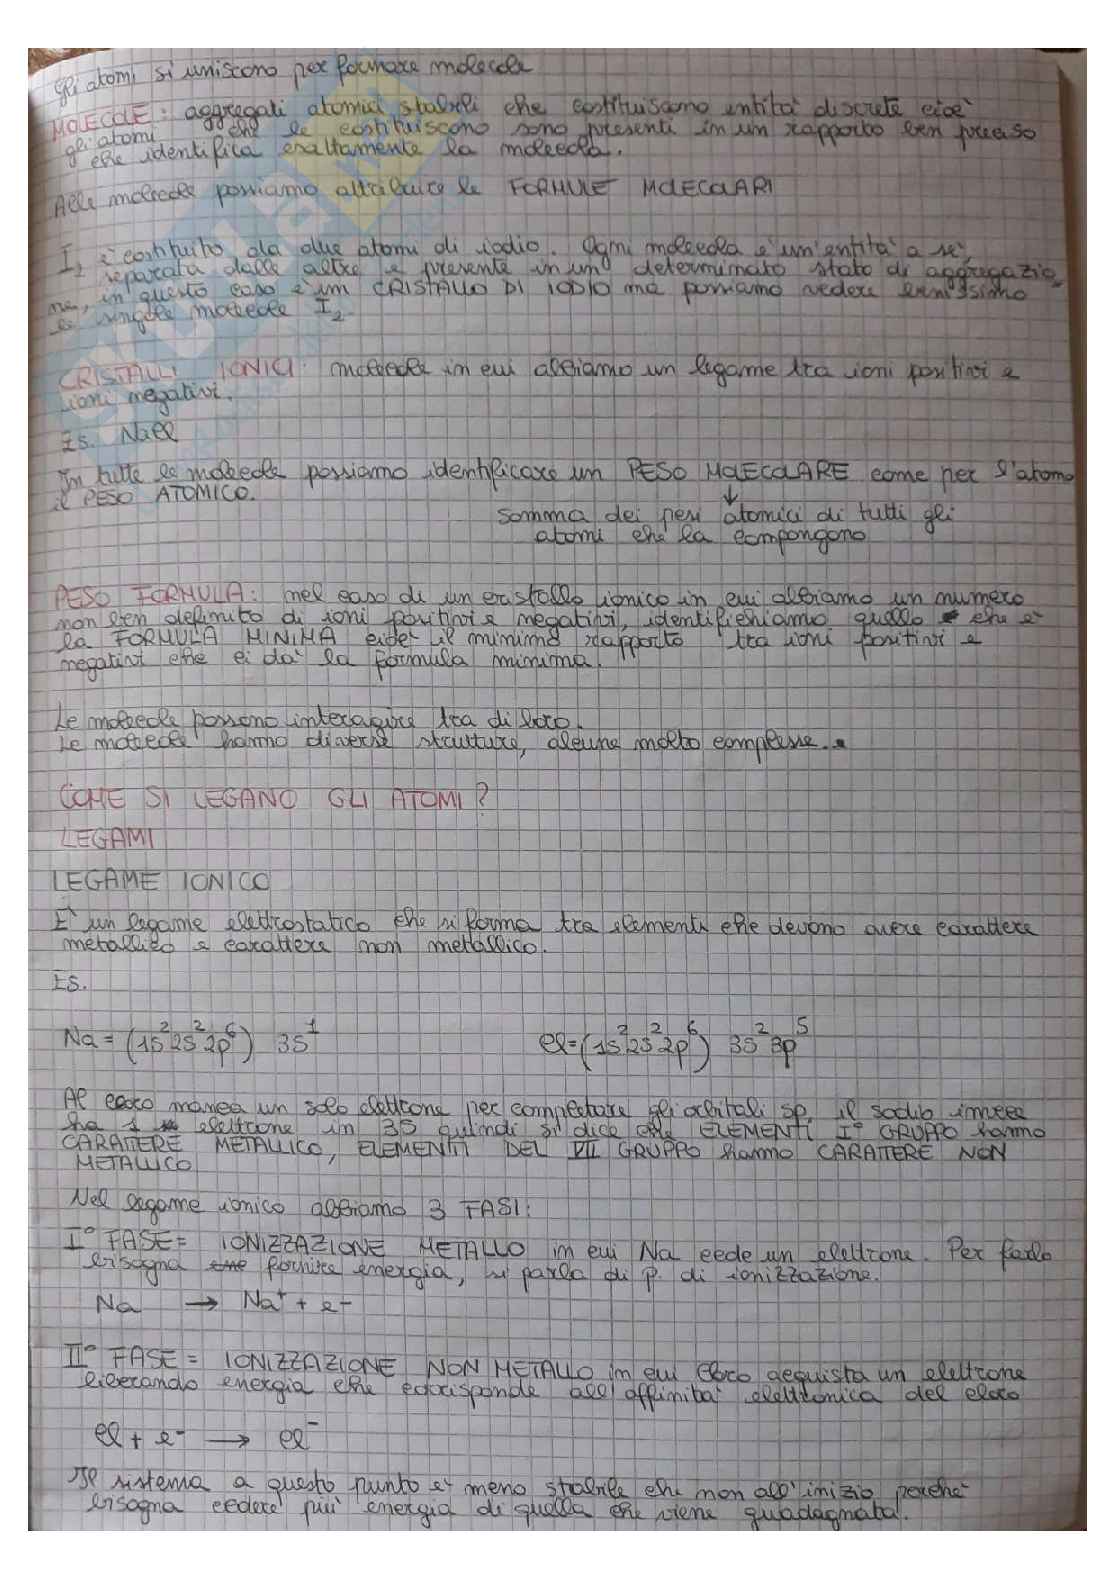 Gli atomi si uniscono per formare molecole
MOLECOLE: aggregati atomici stabili che costituiscono entità discrete cioè
gli atomi che le costituiscono sono presenti in un rapporto ben preciso
che identifica esattamente la molecola.
Alle molecole possiamo attribuire le FORMULE MOLECOLARI
I₂ è costituito da due atomi di iodio. Ogni molecola è un'entità a sé,
separata dalle altre e presente in un determinato stato di aggregazio
ne, in questo caso è un CRISTALLO DI IODIO ma possiamo vedere benissimo
le singole molecole I₂.
CRISTALLI IONICI: molecole in cui abbiamo un legame tra ioni positivi e
ioni negativi.
Es. NaCl
In tutte le molecole possiamo identificare un PESO MOLECOLARE come per l'atomo
il PESO ATOMICO.
↓
somma dei pesi atomici di tutti gli
atomi che la compongono
PESO FORMULA: nel caso di un cristallo ionico in cui abbiamo un numero
non ben definito di ioni positivi e negativi, identifichiamo quello che è
la FORMULA MINIMA cioè il minimo rapporto tra ioni positivi e
negativi che ci dà la formula minima.
Le molecole possono interagire tra di loro.
Le molecole hanno diverse strutture, alcune molto complesse.
COME SI LEGANO GLI ATOMI?
LEGAMI
LEGAME IONICO
È un legame elettrostatico che si forma tra elementi che devono avere carattere
metallico e carattere non metallico.
ES.
Na = (1s² 2s² 2p⁶) 3s¹ Cl = (1s² 2s² 2p⁶) 3s² 3p⁵
Al cloro manca un solo elettrone per completare gli orbitali sp, il sodio invece
ha 1 elettrone in 3s quindi si dice che ELEMENTI I° GRUPPO hanno
CARATTERE METALLICO, ELEMENTI DEL VII GRUPPO hanno CARATTERE NON
METALLICO
Nel legame ionico abbiamo 3 FASI:
I° FASE = IONIZZAZIONE METALLO in cui Na cede un elettrone. Per farlo
bisogna fornire energia, si parla di p. di ionizzazione.
Na → Na⁺ + e⁻
II° FASE = IONIZZAZIONE NON METALLO in cui Cloro acquista un elettrone
liberando energia che corrisponde all'affinità elettronica del cloro
Cl + e⁻ → Cl⁻
Il sistema a questo punto è meno stabile che non all'inizio perché
bisogna cedere più energia di quella che viene guadagnata.